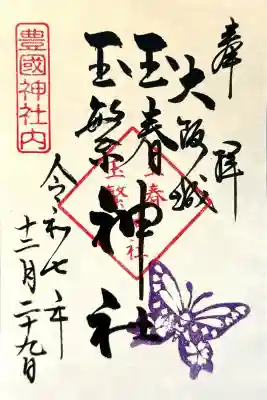 奉拝
大阪城
玉春
玉繁
神社
令和七年
十二月二十九日
豊國神社内
玉春
玉繁
神社